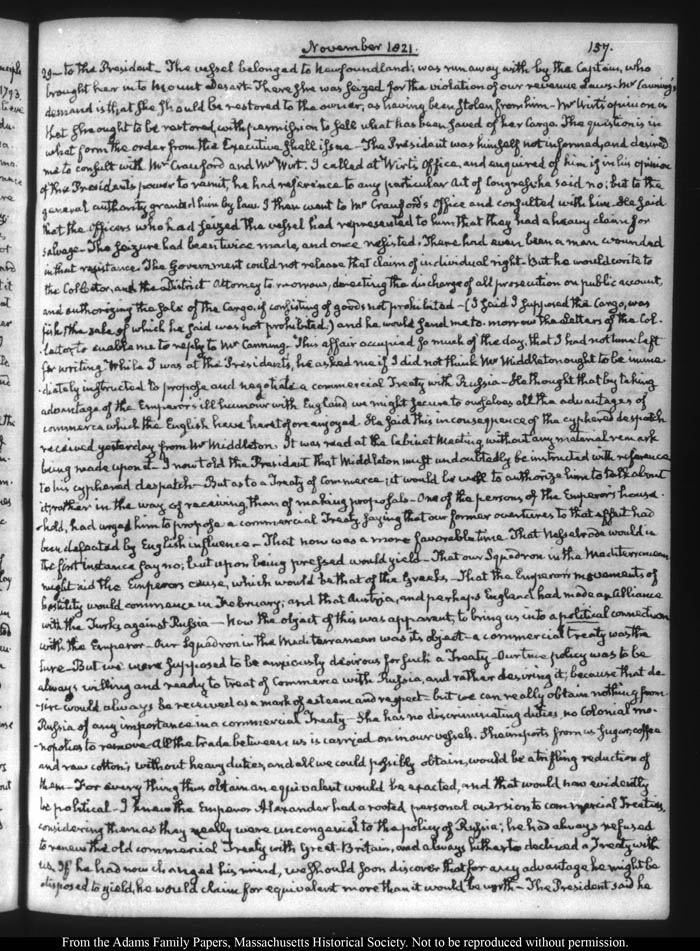 November 1821.
157.
29 — to the President — The vessel belonged to Newfoundland; was run away with by the Captain, who
brought her in to Mount Desert. There she was seized for the violation of our revenue Laws. Mr Canning's
demand is that she should be restored to the owner, as having been stolen from him — Mr Wirt's opinion is
that she ought to be restored, with permission to sell what has been saved of her Cargo. The question is in
what form the order from the Executive shall issue — The President was himself not informed, and desired
me to consult with Mr Crawford and Mr Wirt. I called at Wirt's Office, and enquired of him if in his opinion
of the President's power to remit, he had reference to any particular Act of Congress, he said no; but to the
general authority granted him by law. I then went to Mr Crawford's Office and consulted with him. He said
that the officers who had seized the vessel had represented to him that they had a heavy claim for
salvage — The seizure had been twice made, and once resisted. There had even been a man wounded
in that resistance. The Government could not release that claim of individual right. But he would write to
the Collector, and the District Attorney to-morrow, directing the discharge of all prosecution on public account,
and authorizing the sale of the Cargo, if consisting of goods not prohibited — (I said I supposed the Cargo, was
fish, the sale of which he said was not prohibited.) and he would send me to-morrow the Letters of the Col-
lector, to enable me to reply to Mr Canning. This affair occupied so much of the day, that I had not time left
for writing. While I was at the President's, he asked me if I did not think Mr Middleton ought to be imme-
diately instructed to propose and negotiate a commercial Treaty with Russia — He thought that by taking
advantage of the Emperor's ill humour with England we might secure to ourselves all the advantages of
commerce which the English have heretofore enjoyed. He said this in consequence of the cyphered despatch
received yesterday from Mr Middleton. It was read at the Cabinet Meeting without any material remark
being made upon it. I now told the President that Middleton must undoubtedly be instructed with reference
to his cyphered despatch — But as to a Treaty of Commerce, it would be well to authorize him to talk about
it, rather in the way of receiving, than of making proposals — One of the persons of the Emperor's house-
hold, had urged him to propose a commercial Treaty, saying that our former overtures to that effect had
been defeated by English influence — That now was a more favorable time. That Nesselrode would in
the first instance say no; but upon being pressed would yield — That our Squadron in the Mediterranean
might aid the Emperor's cause, which would be that of the Greeks — That the Emperor's movements of
hostility would commence in February; and that Austria, and perhaps England had made an alliance
with the Turks against Russia — Now the object of this was apparent; to bring us into a political connection
with the Emperor — Our Squadron in the Mediterranean was its object — a commercial treaty was the
lure — But we were supposed to be anxiously desirous for such a Treaty — Our true policy was to be
always willing and ready to treat of Commerce with Russia, and rather desiring it; because that de-
sire would always be received as a mark of esteem and respect — but we can really obtain nothing from
Russia of any importance in a commercial Treaty — She has no discriminating duties, no Colonial mo-
nopolies to remove. All the trade between us is carried on in our vessels. She imports from us Sugar, coffee
and raw cotton; without heavy duties, and all we could possibly obtain, would be a trifling reduction of
them — For every thing thus obtain an equivalent would be exacted, and that would now evidently
be political. I knew the Emperor Alexander had a rooted personal aversion to commercial Treaties,
considering them as they really were uncongenial to the policy of Russia; he had always refused
to renew the old commercial Treaty with Great-Britain, and always hitherto declined a Treaty with
us. If he had now changed his mind, we should soon discover that for any advantage he might be
disposed to yield, he would claim for equivalent more than it would be worth — The President said he
From the Adams Family Papers, Massachusetts Historical Society. Not to be reproduced without permission.